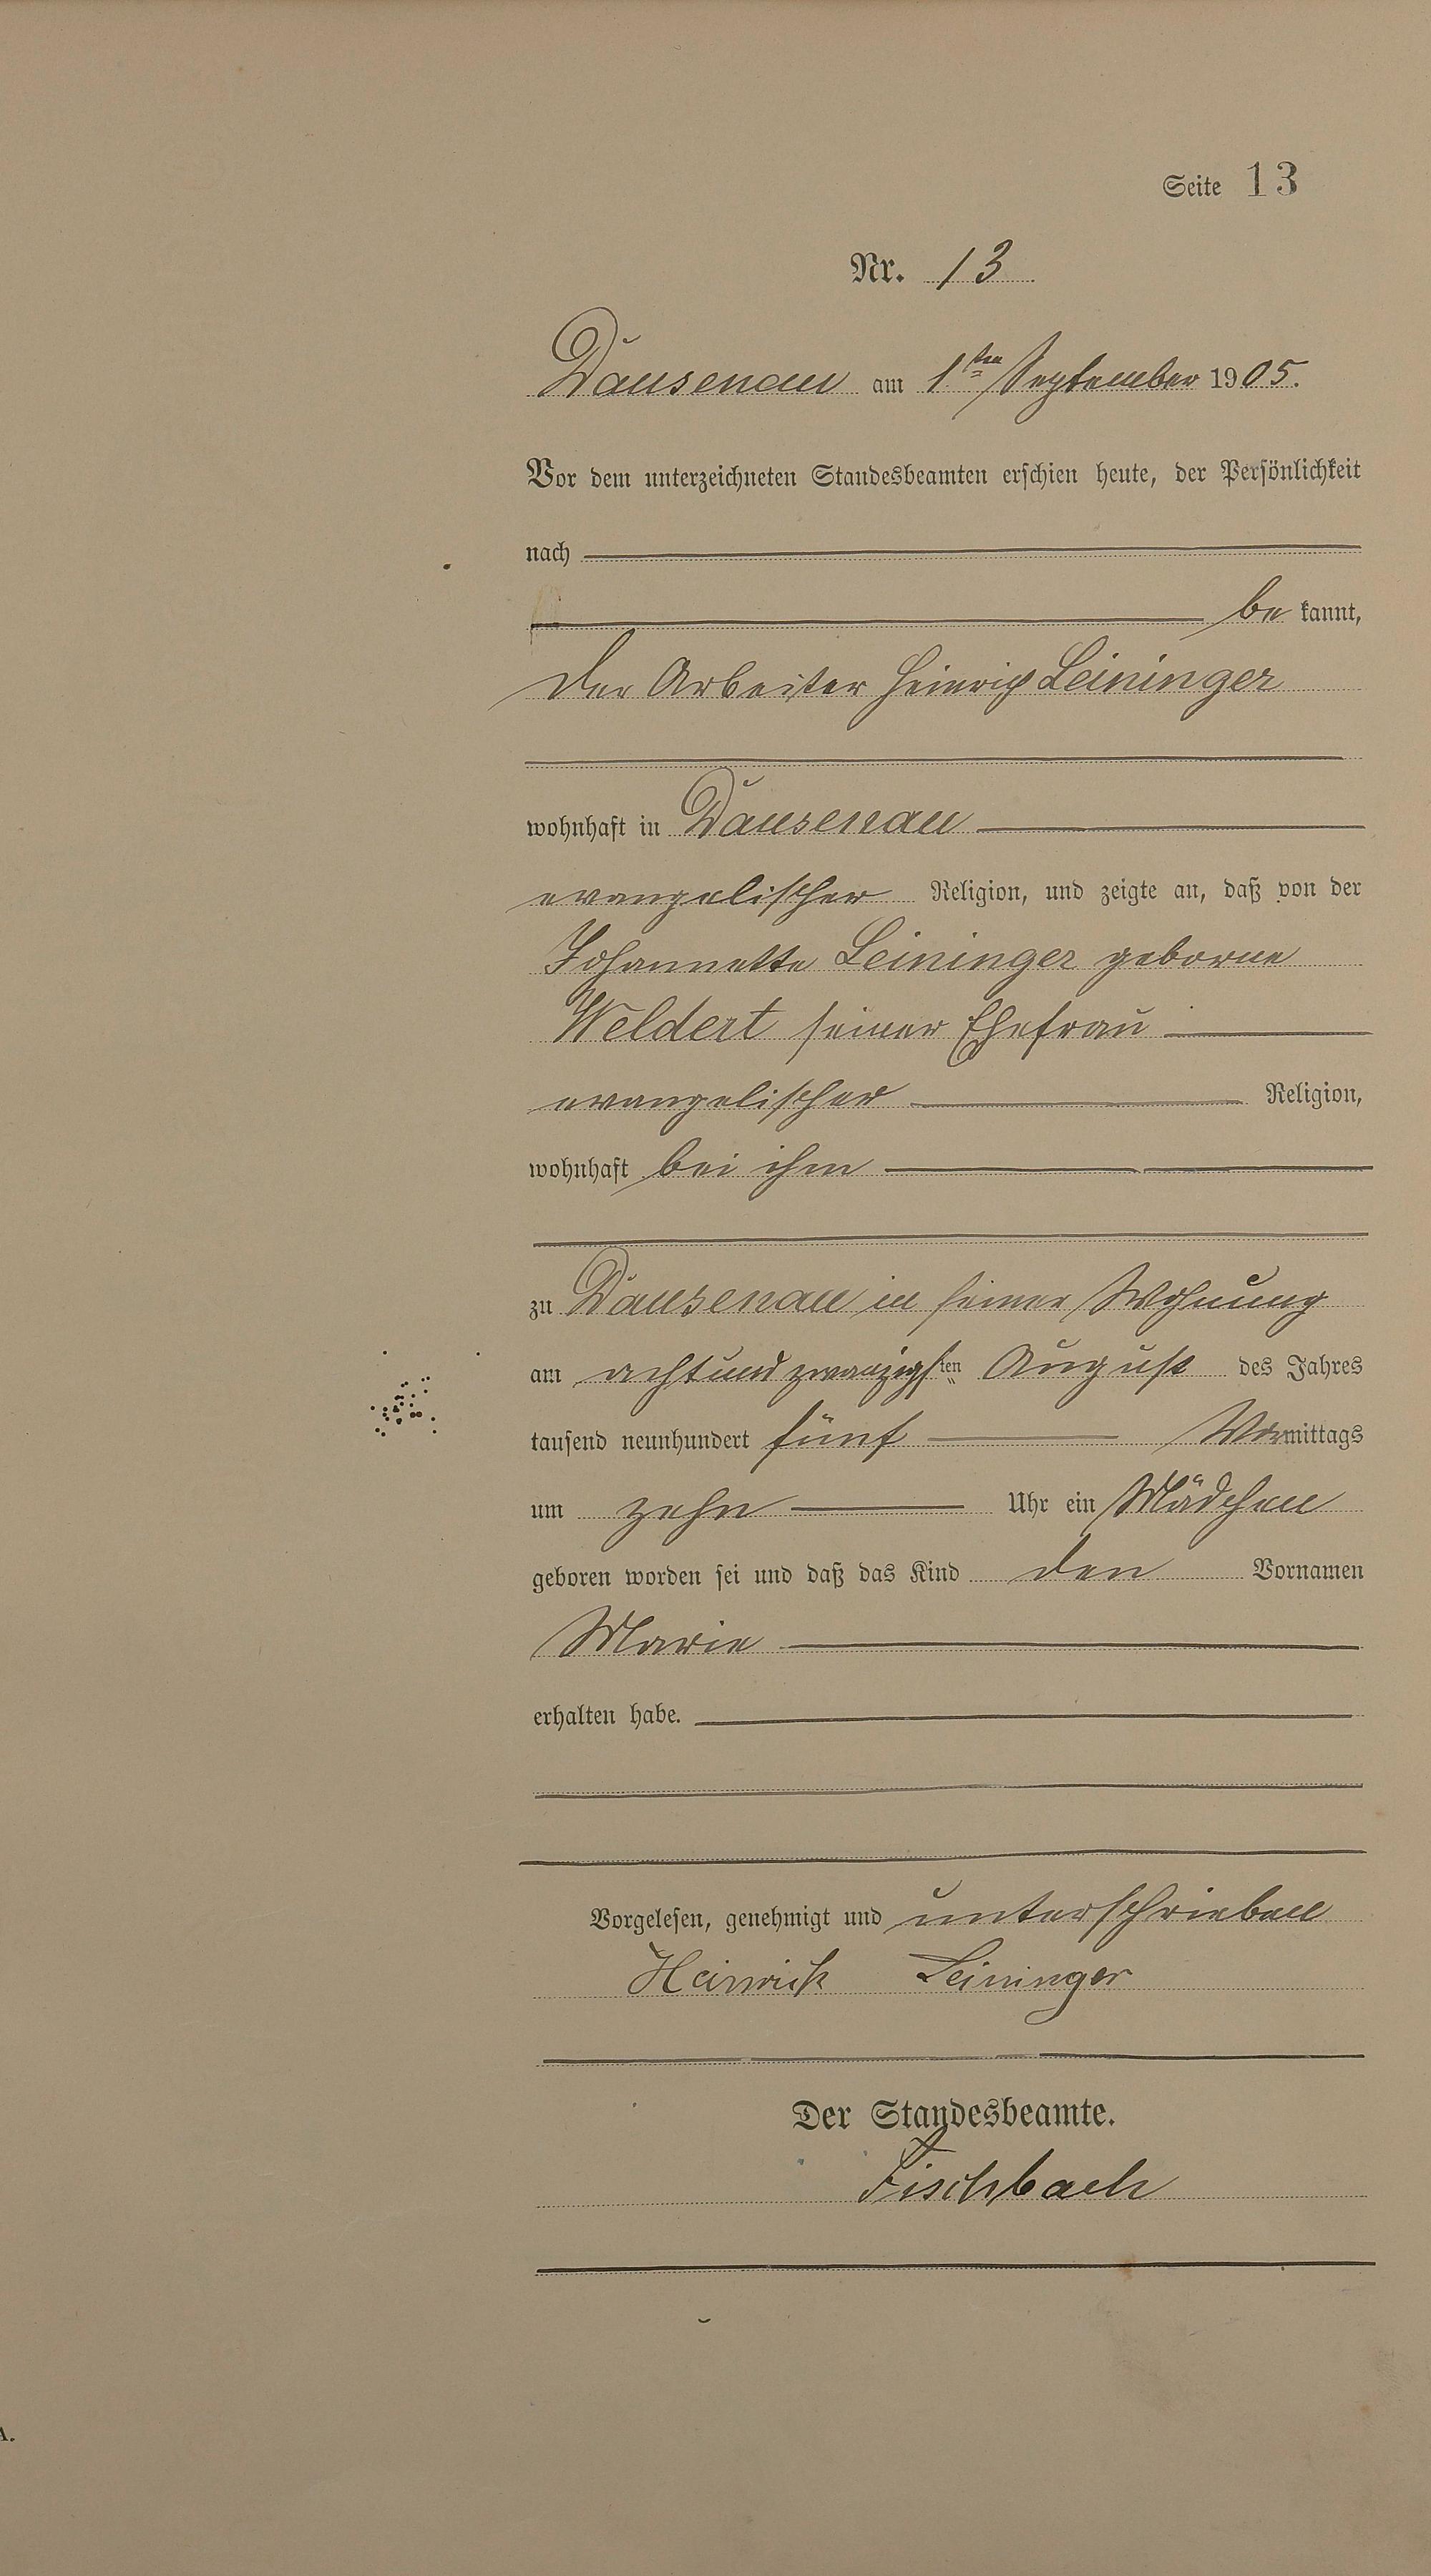 Seite 13
Nr. 13
Dausenau am 1ten September 1905.
Vor dem unterzeichneten Standesbeamten erschien heute, der Persönlichkeit
nach
be kannt,
der Arbeiter Heinrich Leininger
wohnhaft in Dausenau
evangelischer Religion, und zeigte an, daß von der
Johannette Leininger geborne
Weldert seiner Ehefrau
evangelischer Religion,
wohnhaft bei ihm
zu Dausenau in seiner Wohnung
am achtundzwanzigsten August des Jahres
tausend neunhundert fünf Vormittags
um zehn Uhr ein Mädchen
geboren worden sei und daß das Kind den Vornamen
Marie
erhalten habe.
Vorgelesen, genehmigt und unterschrieben
Heinrich Leininger
Der Standesbeamte.
Fischbach
A.